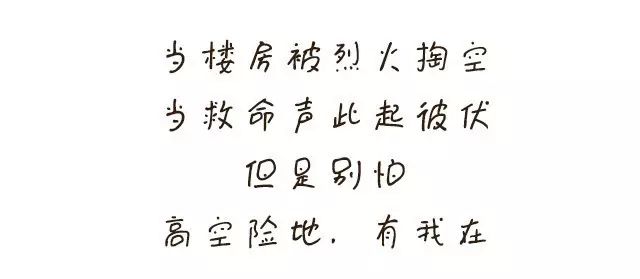 当楼房被烈火掏空
当救命声此起彼伏
但是别怕
高空险地.有我在